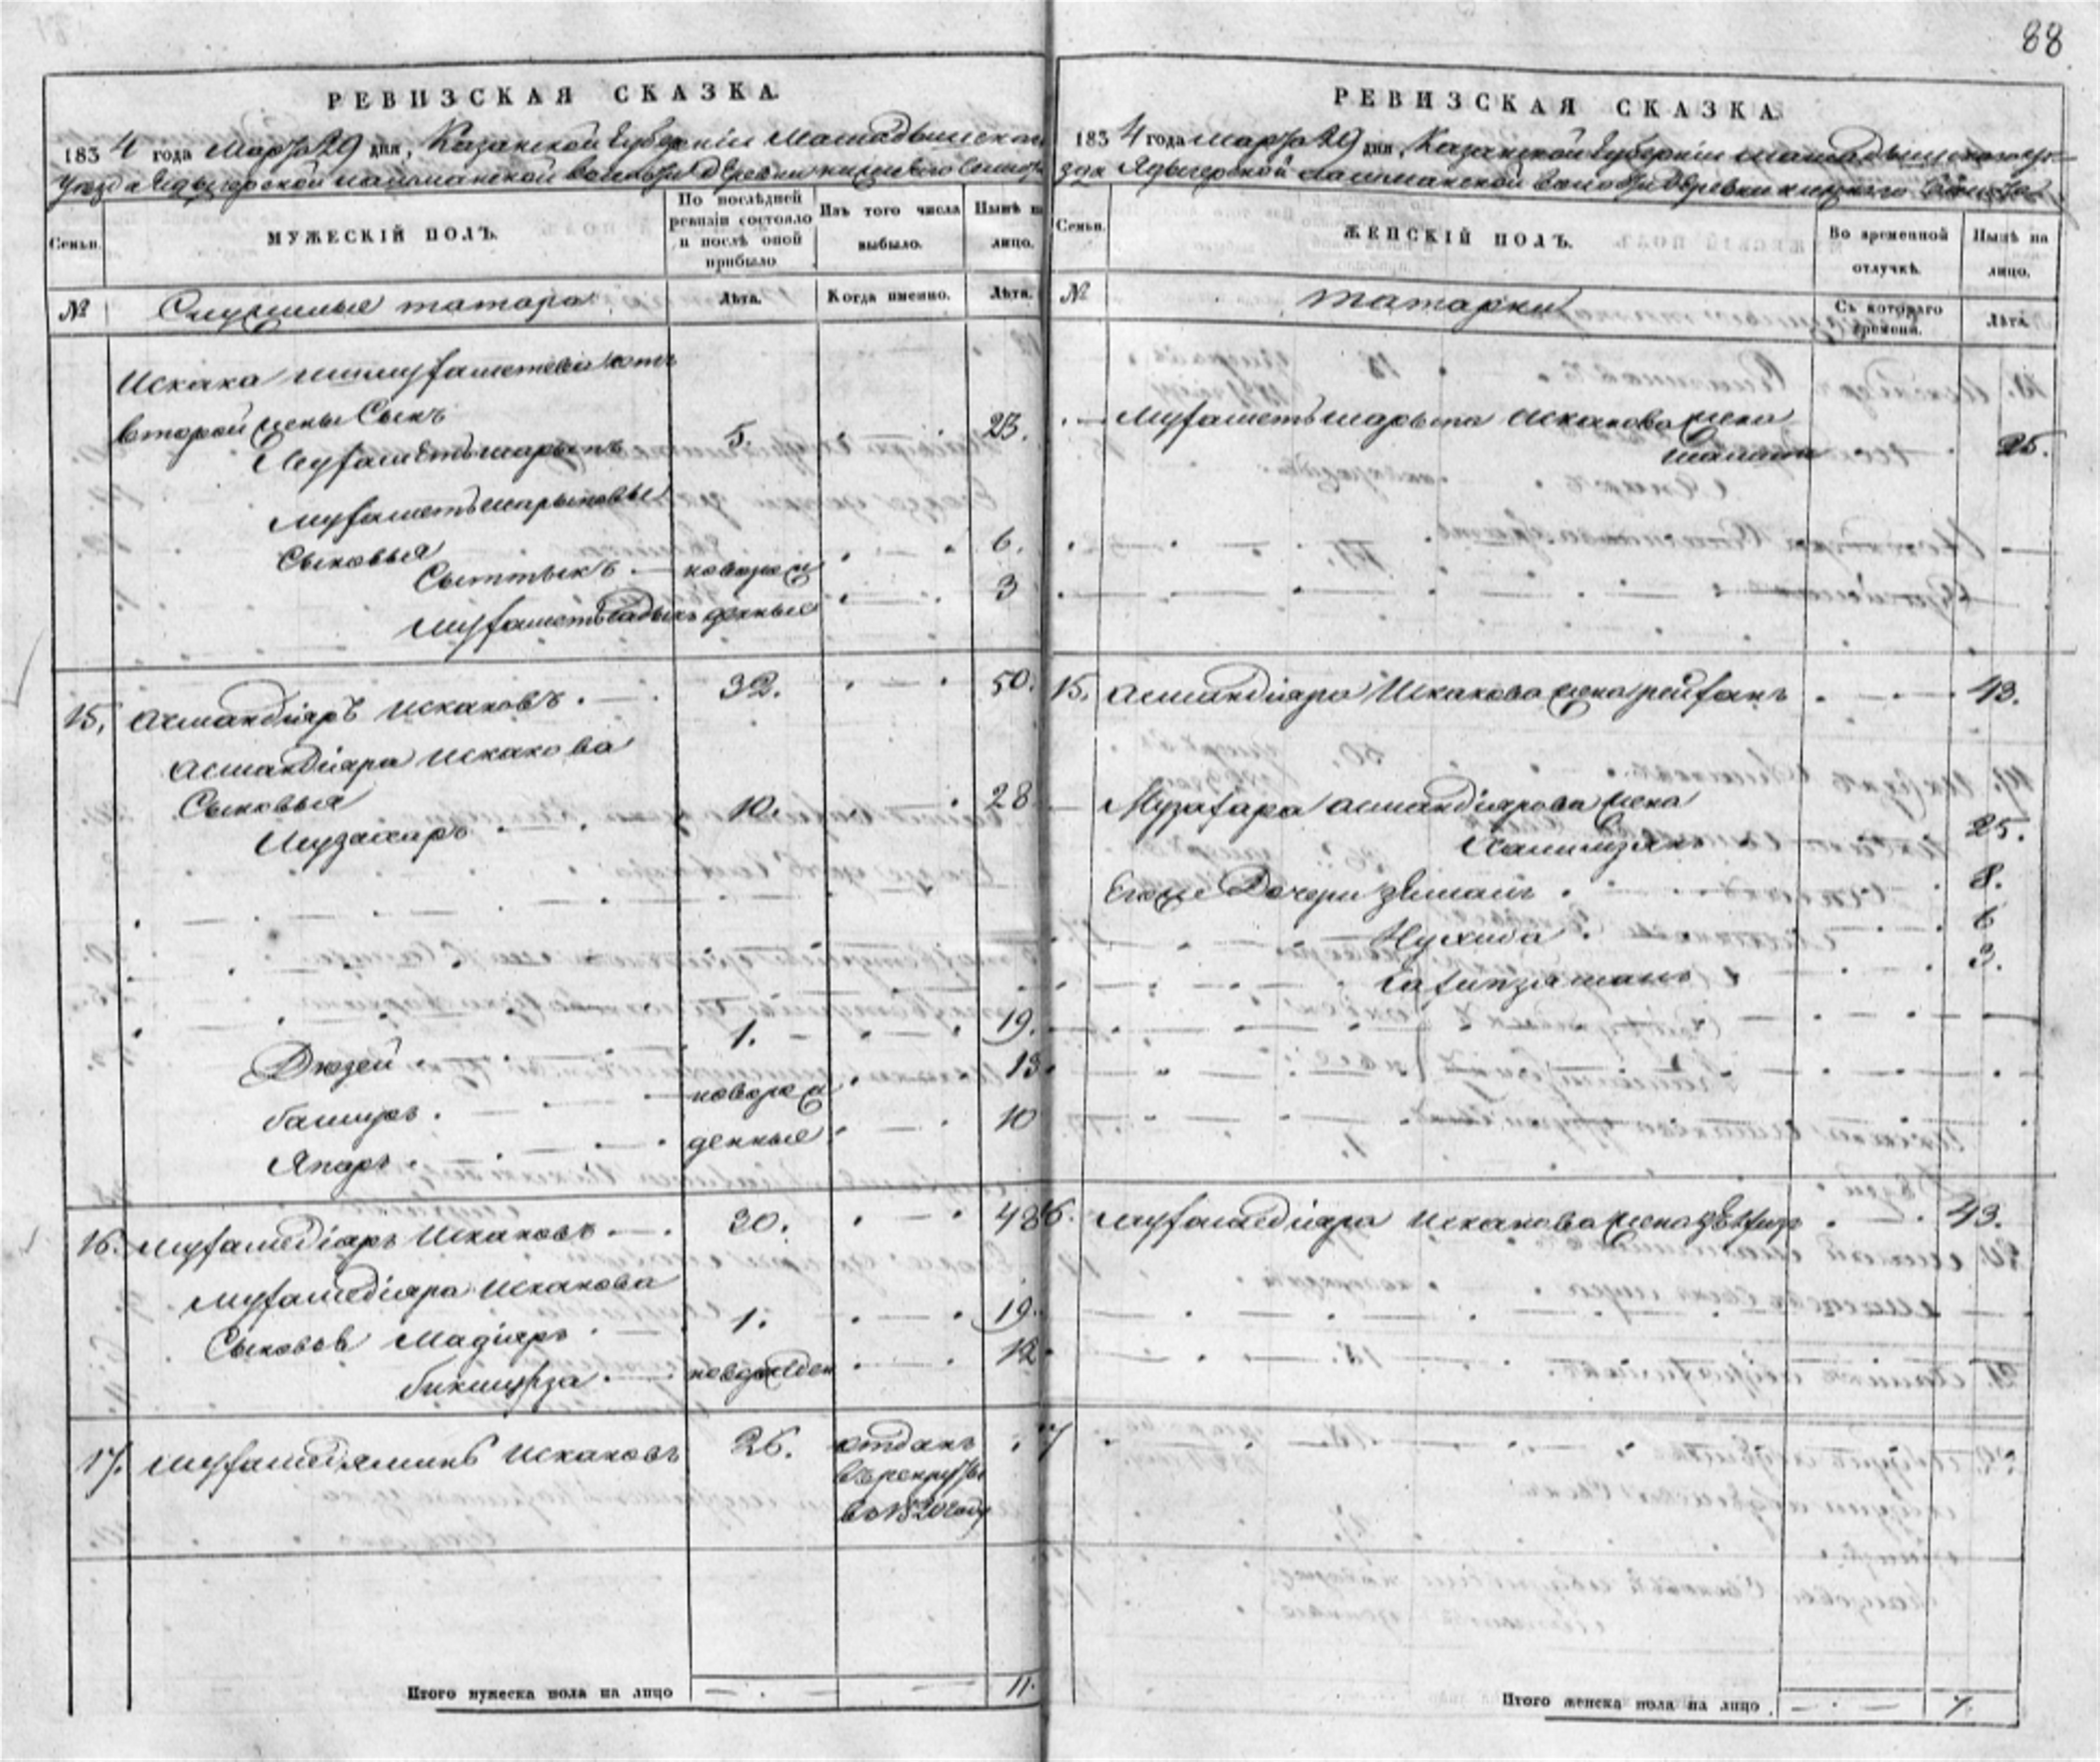 88
РЕВИЗСКАЯ СКАЗКА.
1834 года Марта 29 дня, Казанской Губернии Мамадышскаго
уезда Ядыгерской лашманской волости деревни
Семьи.
МУЖЕСКІЙ ПОЛЪ.
По послѣдней ревизіи состояло и послѣ оной прибыло
Изъ того числа выбыло.
Нынѣ на лицо.
№
Служилые татара
Лѣта.
Когда именно.
Лѣта.
Искака отъ
второй жены Сынъ
Мухаметьшарыпъ 5. 23.
Мухаметьшарыповы
Сыновья
Сыттыкъ новорож 6.
Мухаметьсадыкъ денные 3
15. Асмандіяръ Искаковъ 32. 50.
Асмандіяра Искакова
Сыновья
Музафаръ 10. 28
Дюзей 1. 19.
башыръ новорож 13
Япаръ денные 10
16. Мухамедіяръ Искаковъ 30. 48
Мухамедіяра Искакова
Сыновья Мадіяръ 1. 19.
бикмурза новорожден 12
17. Мухамедіяминъ Искаковъ 26. отданъ
въ рекруты
въ 1820 году
Итого мужеска пола на лицо 11.
РЕВИЗСКАЯ СКАЗКА.
1834 года марта 29 дня, Казанской Губерніи мамадышскаго уѣ-
зда Ядыгерской лашманской волости деревни
Семьи.
ЖЕНСКІЙ ПОЛЪ.
Во временной отлучкѣ.
Нынѣ на лицо.
№
татарки
Съ котораго времени.
Лѣта.
Мухаметьшарыпа Искакова жена
25.
15. Асмандіяра Искакова жена рейханъ 43.
Музафара Асмандіярова жена
25.
Егоже Дочери 8.
6
3.
16. Мухамедіяра Искакова жена 43.
17
Итого женска пола на лицо 7.